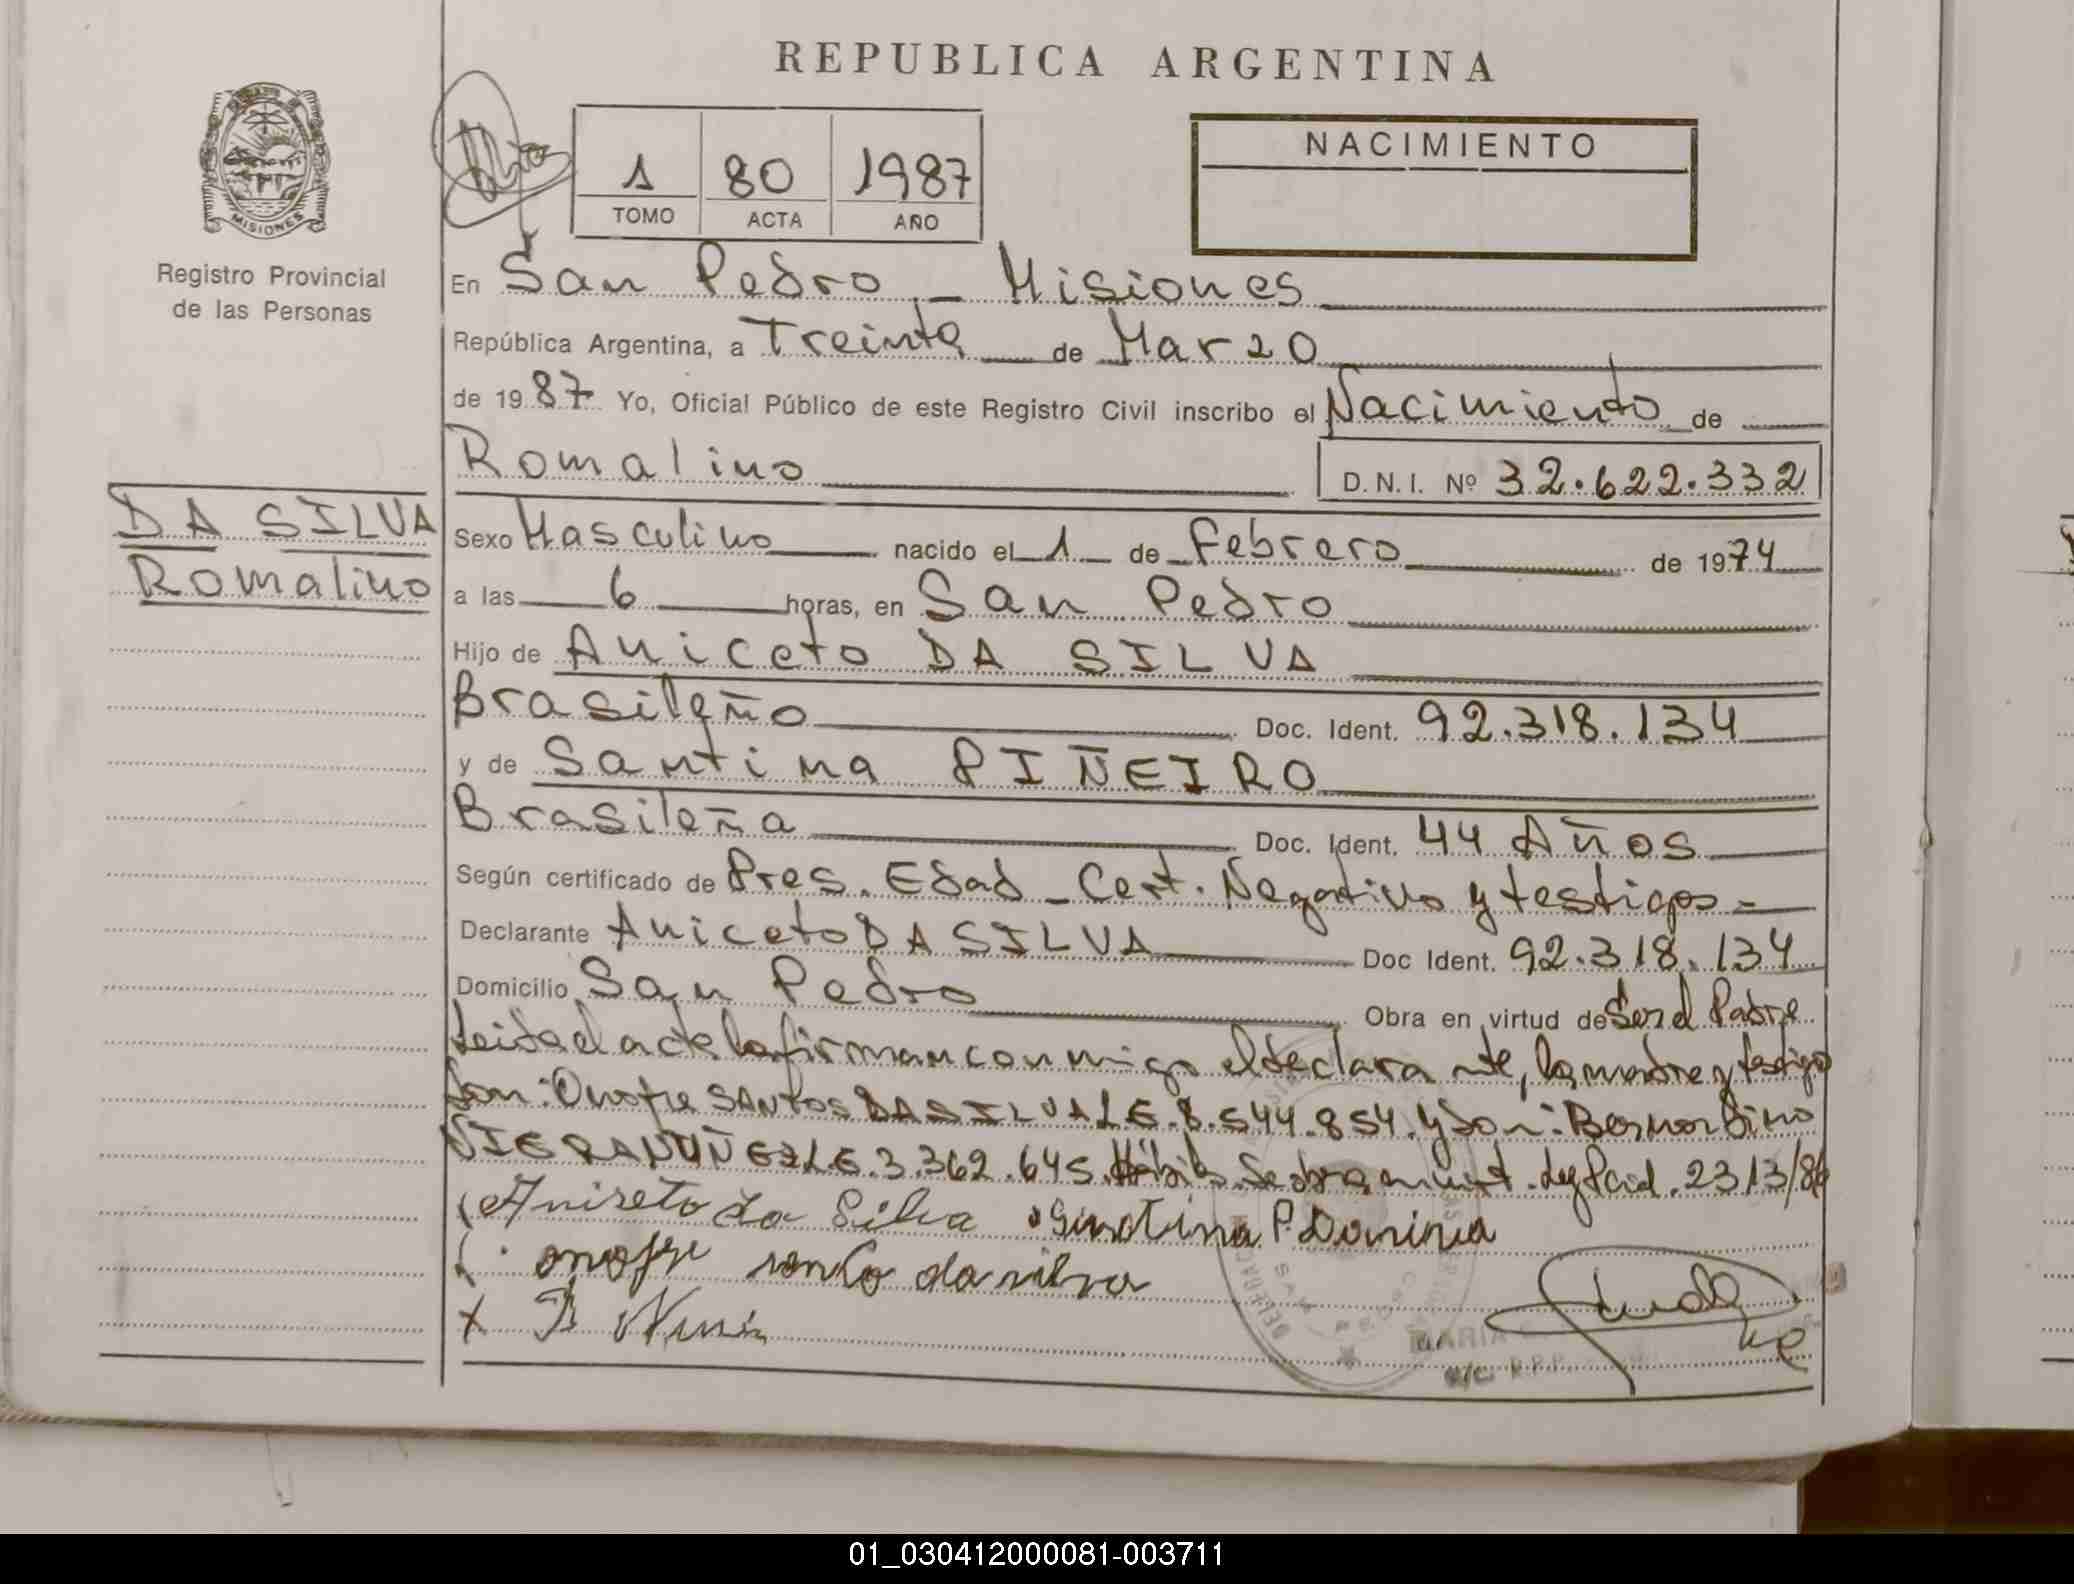 REPUBLICA ARGENTINA
NACIMIENTO
1 80 1987
TOMO ACTA AÑO
MISIONES
Registro Provincial
de las Personas
En San Pedro - Misiones
República Argentina, a Treinta de Marzo
de 1987 Yo, Oficial Público de este Registro Civil inscribo el Nacimiento de
Romalino
D.N.I. Nº 32.622.332
DA SILVA
Romalino
Sexo Masculino nacido el 1 de Febrero de 1974
a las 6 horas, en San Pedro
Hijo de Aniceto DA SILVA
Brasileño Doc. Ident. 92.318.134
y de Santina PIÑEIRO
Brasileña Doc. Ident. 44 Años
Según certificado de Pres. Edad - Cert. Negativo y testigos -
Declarante Aniceto DA SILVA Doc Ident. 92.318.134
Domicilio San Pedro Obra en virtud de Ser el Padre
Leida el acta la firman conmigo el declarante, la madre y testigo
Don: Onofre SANTOS DA SILVA LE 8.544.854 y Don: Bernardino
VIERA NUÑEZ LE 3.362.645 Ley Pcial. 2313/86
Aniseto da Silva Santina P.
onofre santo da silva
x B
MARIA
01_030412000081-003711